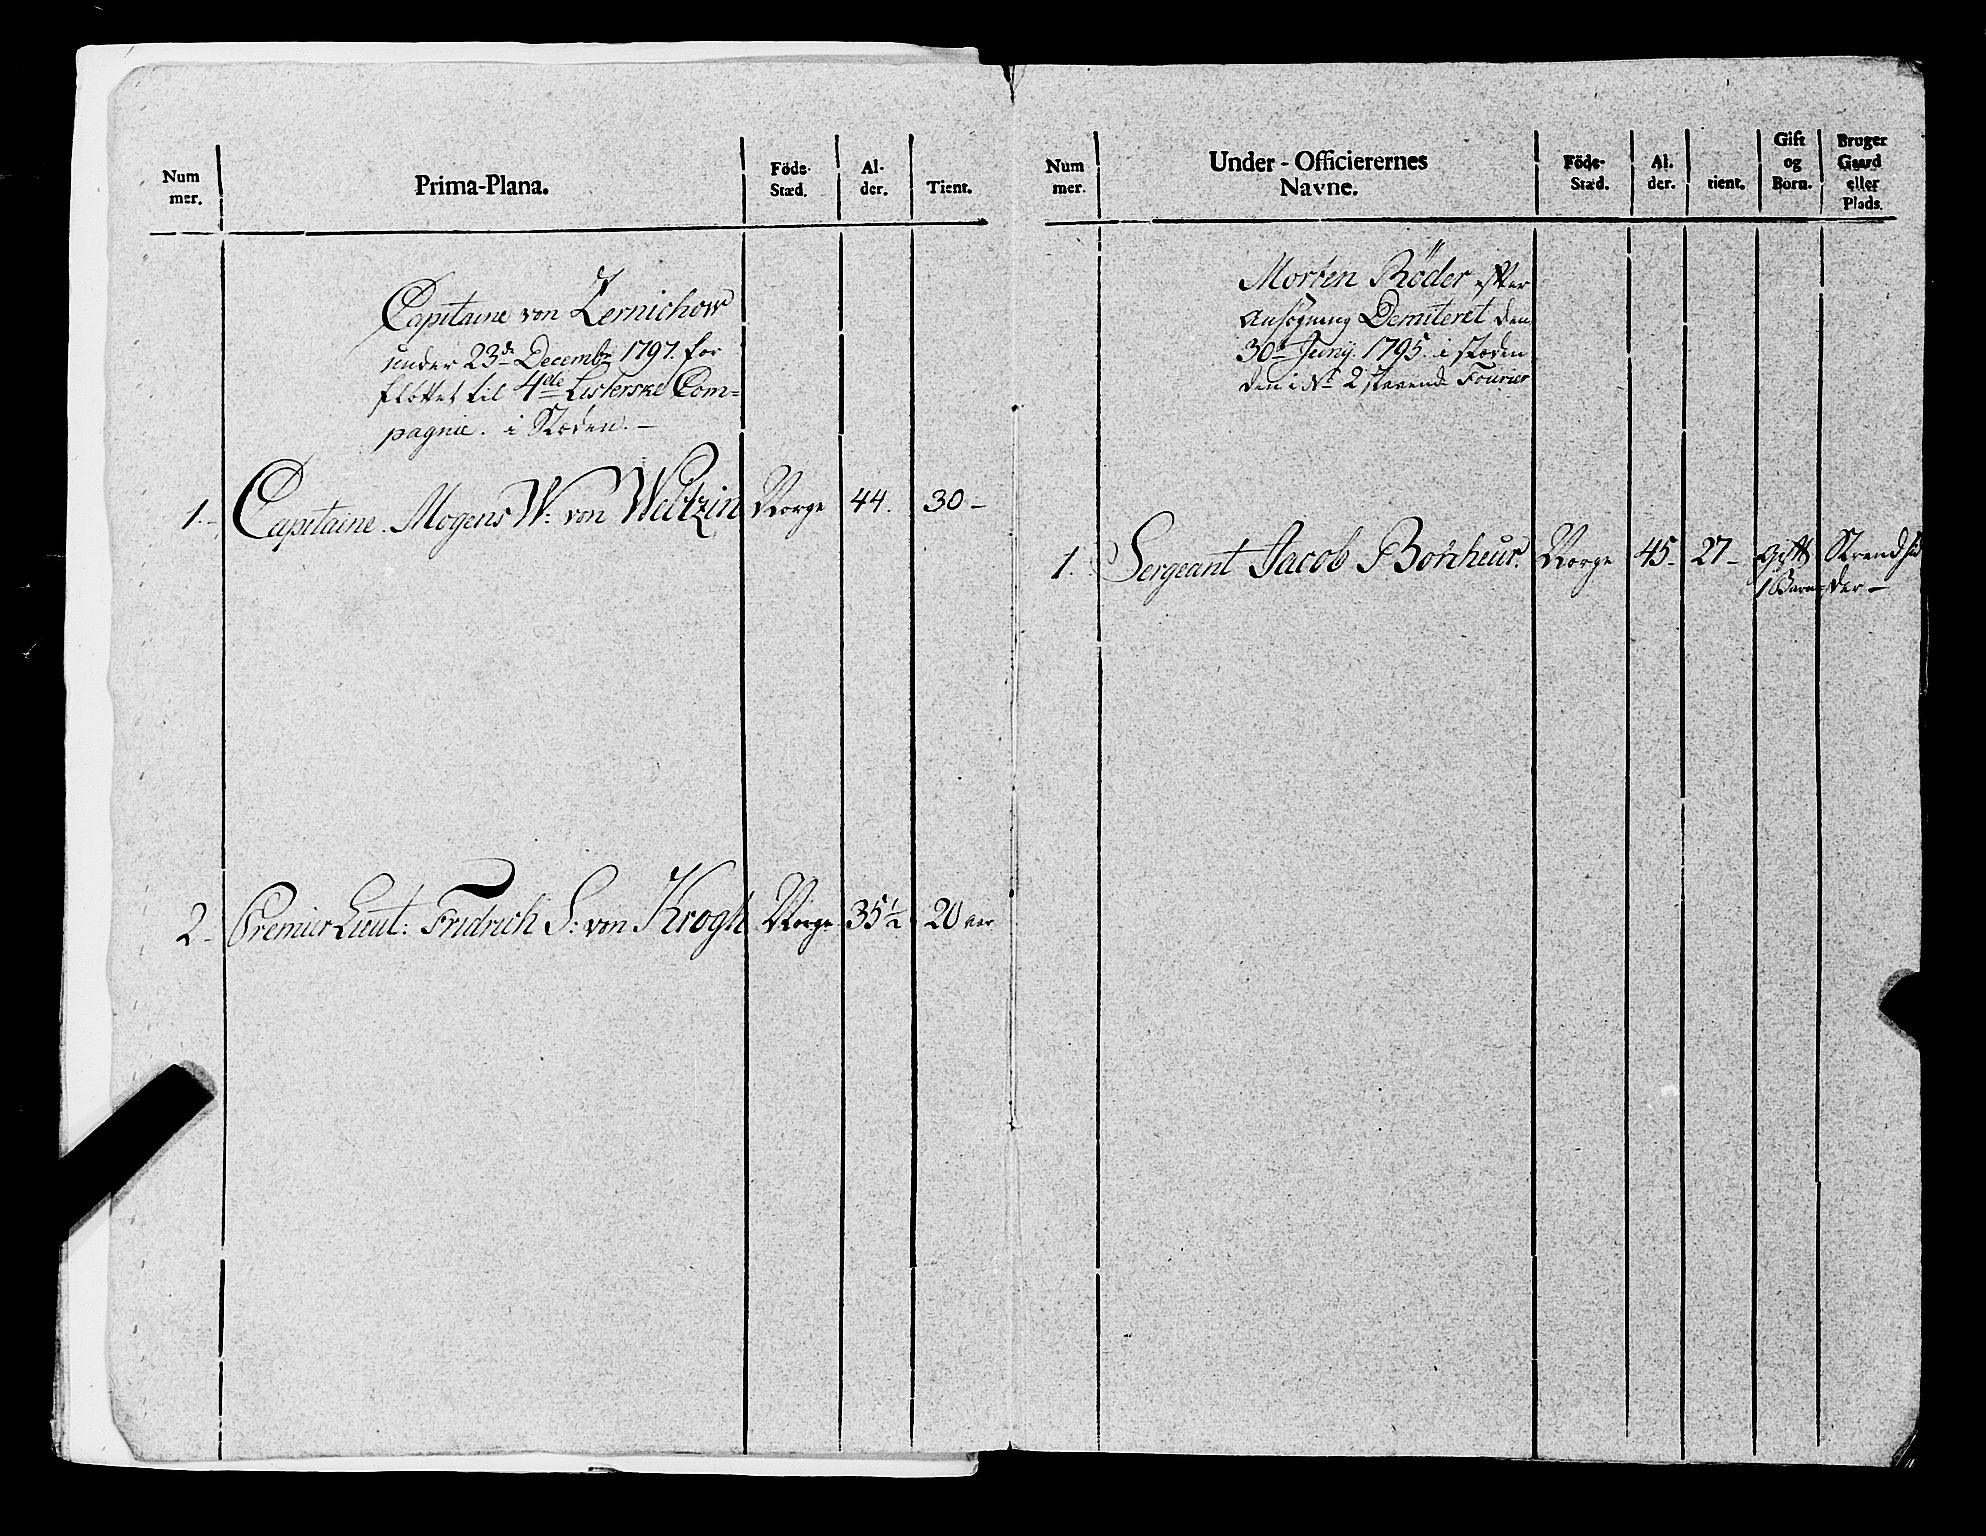 Num
mer.
Prima-Plana.
Föde-
Stæd.
Al-
der.
Tient.
Capitaine von Zernichow
under 23de Decembr 1797. for
fløttet til 4de Listerske Com=
pagnie. i Stæden. -
1. - Capitaine. Mogens W: von Weltzin Norge 44. 30 -
2 - Premier Lieut: Fridrich S: von Krogh Norge 35 1/2 20 aar
Num
mer.
Under-Officierernes
Navne.
Föde-
Stæd.
Al.
der.
tient.
Gift
og
Born.
Bruger
Gaard
eller
Plads.
Morten Röder efter
Ansøgning Demiteret den
30te Junij 1795. i stæden
den i No 2 staaende Fourier
1. Sergeant Jacob Bonheur. Norge 45 - 27 - gift Strendsi
1 Barn =der -